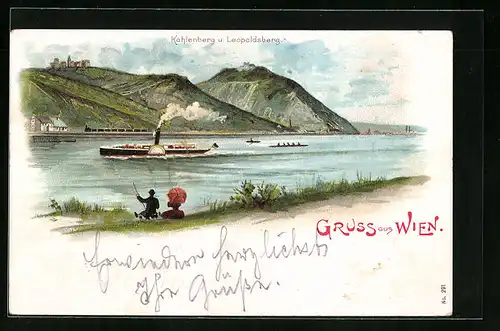 Kahlenberg u Leopoldsberg.
GRUSS aus WIEN.
Erwiedern herzlichst
Ihre Grüße.
No. 291